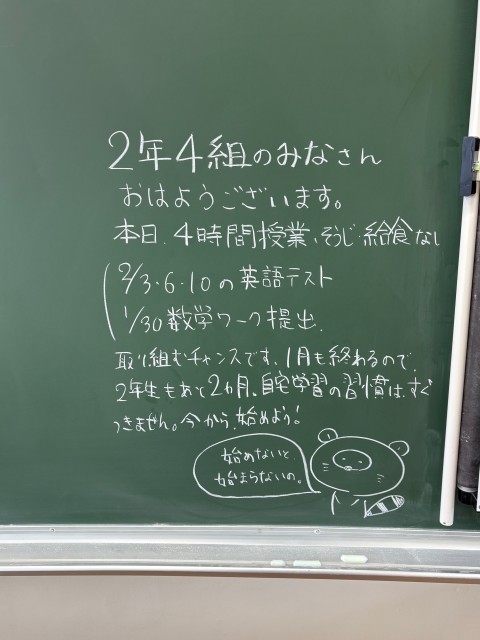 2年4組のみなさん
おはようございます。
本日、4時間授業、そうじ・給食なし
2/3・6・10の英語テスト
1/30数学ワーク提出、
取り組むチャンスです。1月も終わるので、
2年生もあと2カ月。自宅学習の習慣は、すぐ
つきません。今から、始めよう!
始めないと
始まらないの。